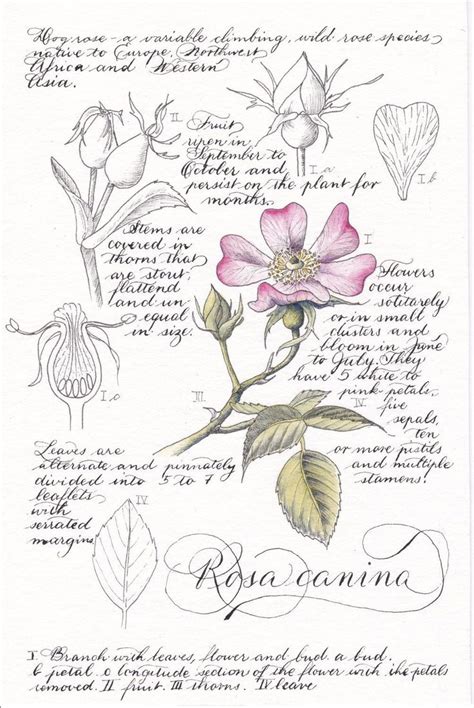 Dogrose - a variable climbing, wild rose species
native to Europe, Northwest
Africa and Western
Asia.
II
Fruit
ripen in
September to
October and
persist on the plant for
months.
I a
I b
Stems are
covered in
thorns that
are stout,
flattend
and un
equal
in size.
I
Flowers
occur
solitarely
or in small
clusters and
bloom in June
to July. They
have 5 white to
pink petals,
five
sepals,
ten
or more pistils
and multiple
stamens.
I c
III
IV
Leaves are
alternate and pinnately
divided into 5 to 7
leaflets
with
serrated
margin.
IV
Rosa canina
I Branch with leaves, flower and bud. a bud.
b petal. c longitude section of the flower with the petals
removed. II fruit. III thorns. IV leave